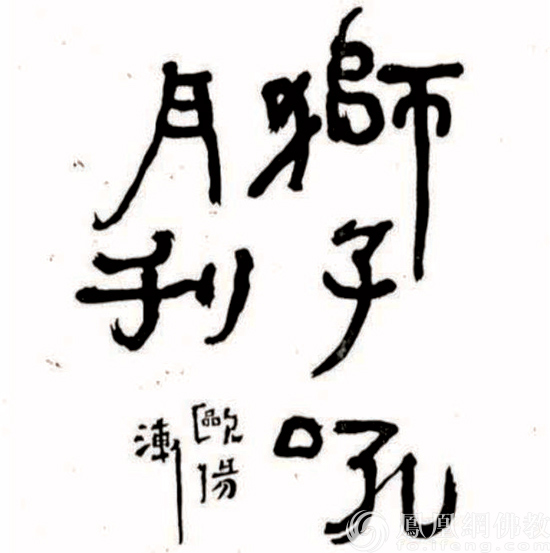 獅子吼
月刊
歐陽
漸
鳳凰網佛教
fo.ifeng.com